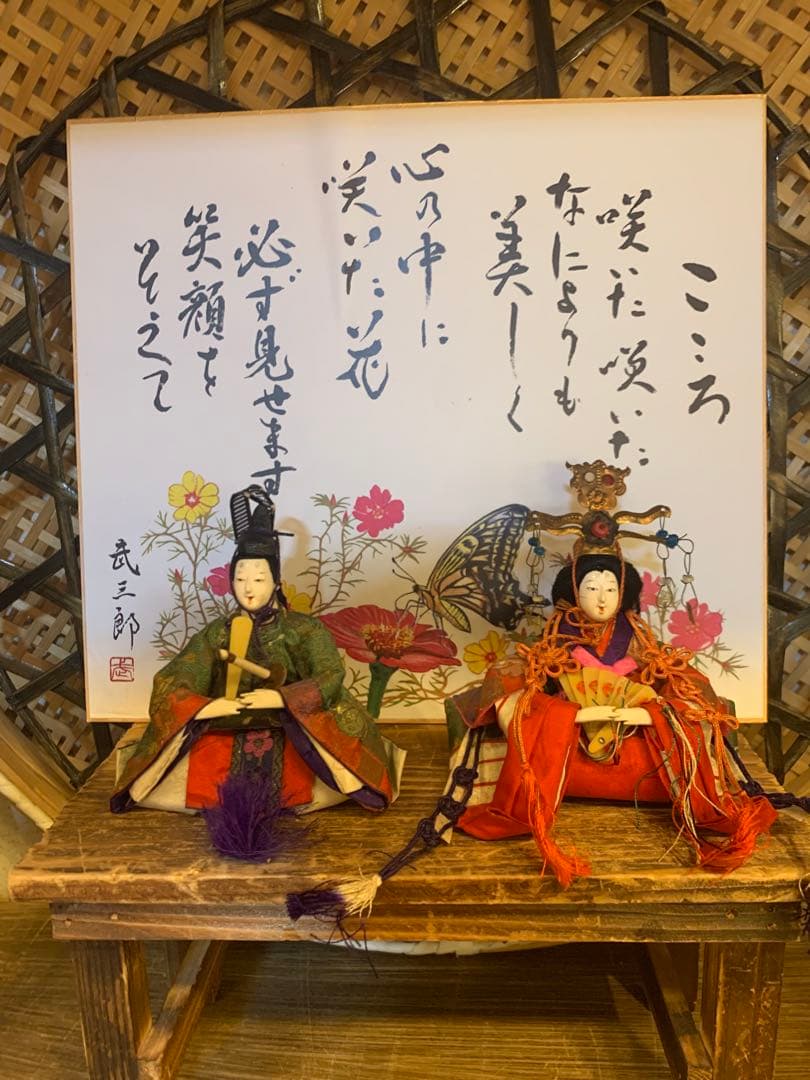 こころ
咲いた咲いた
なによりも
美しく
心の中に
咲いた花
必ず見せます
笑顔を
そえて
武三郎